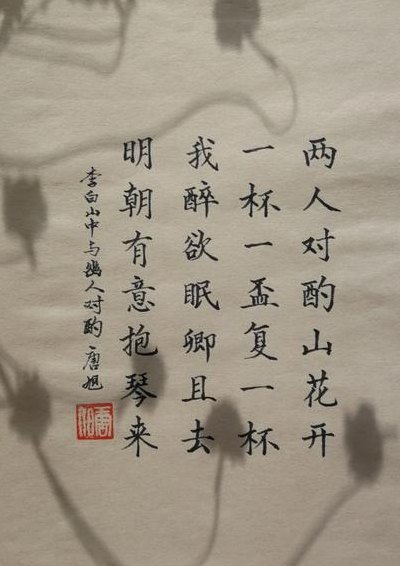 两人对酌山花开
一杯一盃复一杯
我醉欲眠卿且去
明朝有意抱琴来
李白山中与幽人对酌 唐旭